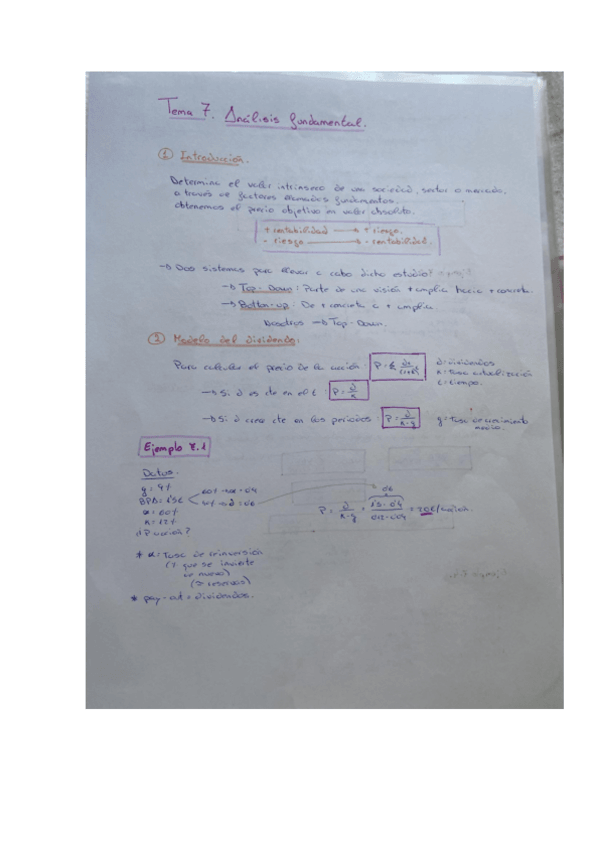 Tema 7. Análisis fundamental.
① Introducción.
Determina el valor intrínseco de una sociedad, sector o mercado,
a través de factores llamados fundamentos.
obtenemos el precio objetivo en valor absoluto.
+ rentabilidad → + riesgo.
- riesgo → - rentabilidad.
→ Dos sistemas para llevar a cabo dicho estudio:
→ Top-Down: Parte de una visión + amplia hacia + concreta.
→ Botton-up: De + concreta a + amplia.
Nosotros → Top-Down.
② Modelo del dividendo:
Para calcular el precio de la acción:
d = dividendos
k = Tasa actualización
t = tiempo.
→ Si d es cte en el t: P = d/k
→ Si d crece cte en los periodos: P = d/k-g
g = Tasa de crecimiento medio.
Ejemplo 7.1
Datos.
g = 4%
BPA = 1'5€
α = 60%
k = 12%
¿P acción?
60%
40% → d = 0'6
0'6
P = d/k-g = 1'5 · 0'4/0'12 - 0'04
* α = Tasa de reinversión
(% que se invierte
de nuevo)
(≃ reservas)
* pay-out = dividendos.